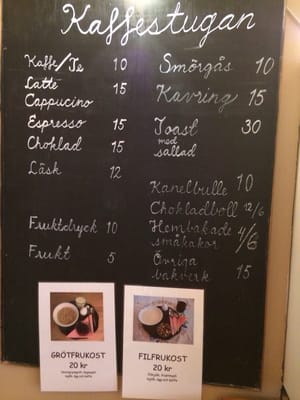 Kaffestugan
Kaffe/Te 10
Latte 15
Cappucino
Espresso 15
Choklad 15
Läsk 12
Fruktdryck 10
Frukt 5
Smörgås 10
Kavring 15
Toast 30
med
sallad
Kanelbulle 10
Chokladboll 12/6
Hembakade 4/6
småkakor
Övriga
bakverk 15
GRÖTFRUKOST
20 kr
FILFRUKOST
20 kr